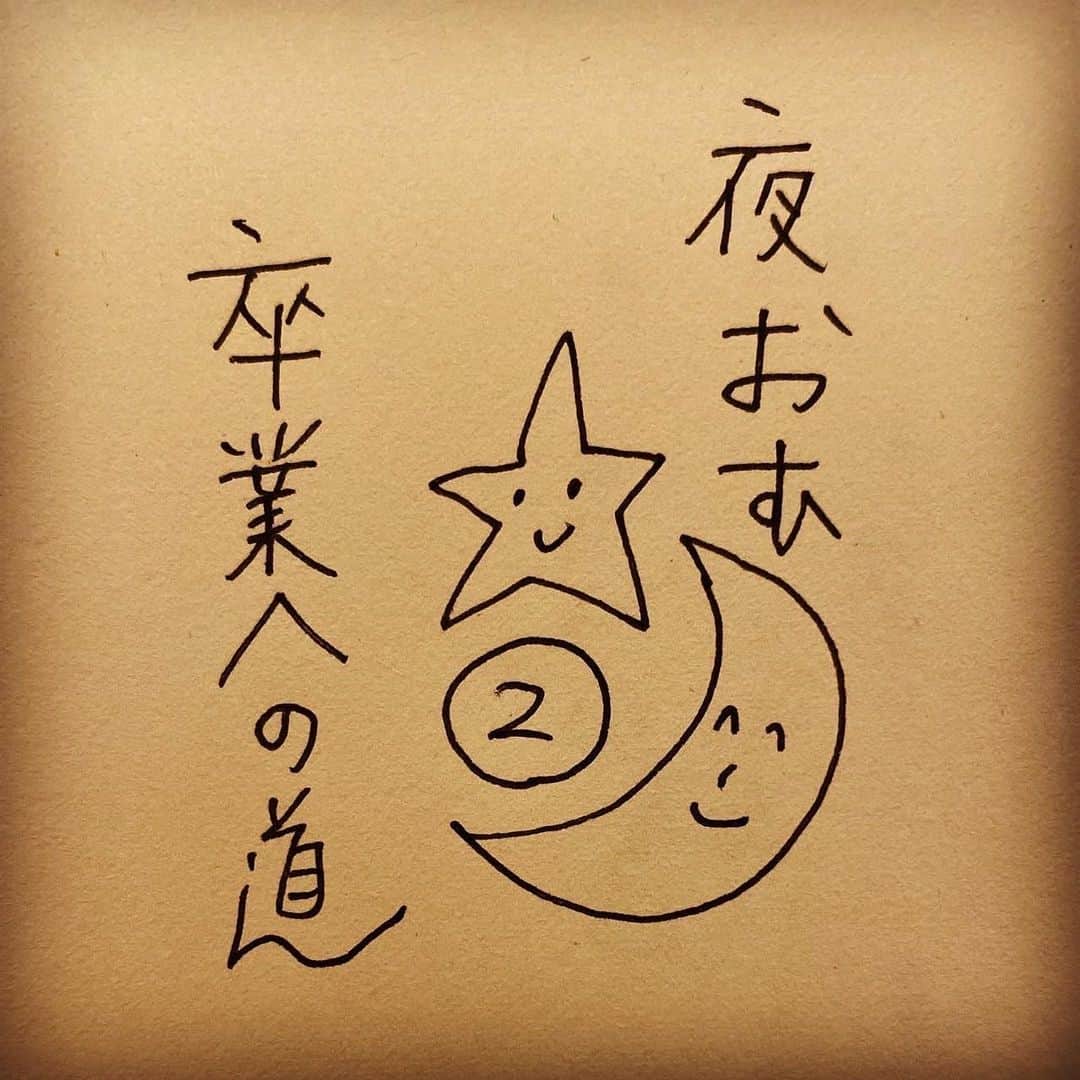 夜おむ
②
卒業への道